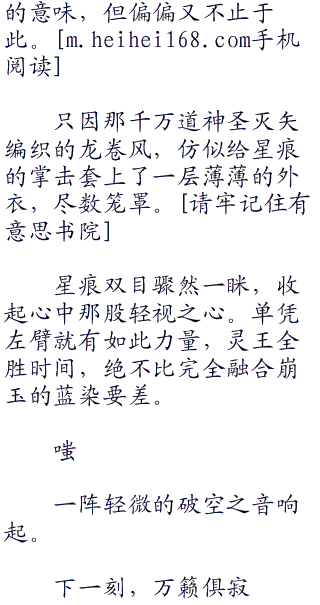 的意味，但偏偏又不止于
此。[m.heihei168.com手机
阅读]
只因那千万道神圣灭矢
编织的龙卷风，仿似给星痕
的掌击套上了一层薄薄的外
衣，尽数笼罩。[请牢记住有
意思书院]
星痕双目骤然一眯，收
起心中那股轻视之心。单凭
左臂就有如此力量，灵王全
胜时间，绝不比完全融合崩
玉的蓝染要差。
嗤
一阵轻微的破空之音响
起。
下一刻，万籁俱寂